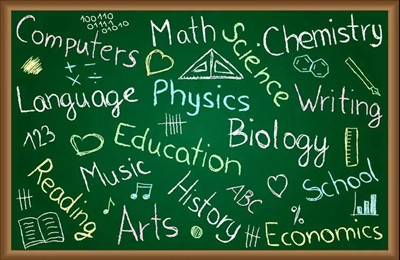 100110
01111
01010
Computers
Math
Science
Chemistry
Language
Physics
Writing
123
Education
Biology
Reading
Music
History
ABC
School
Arts
%
Economics